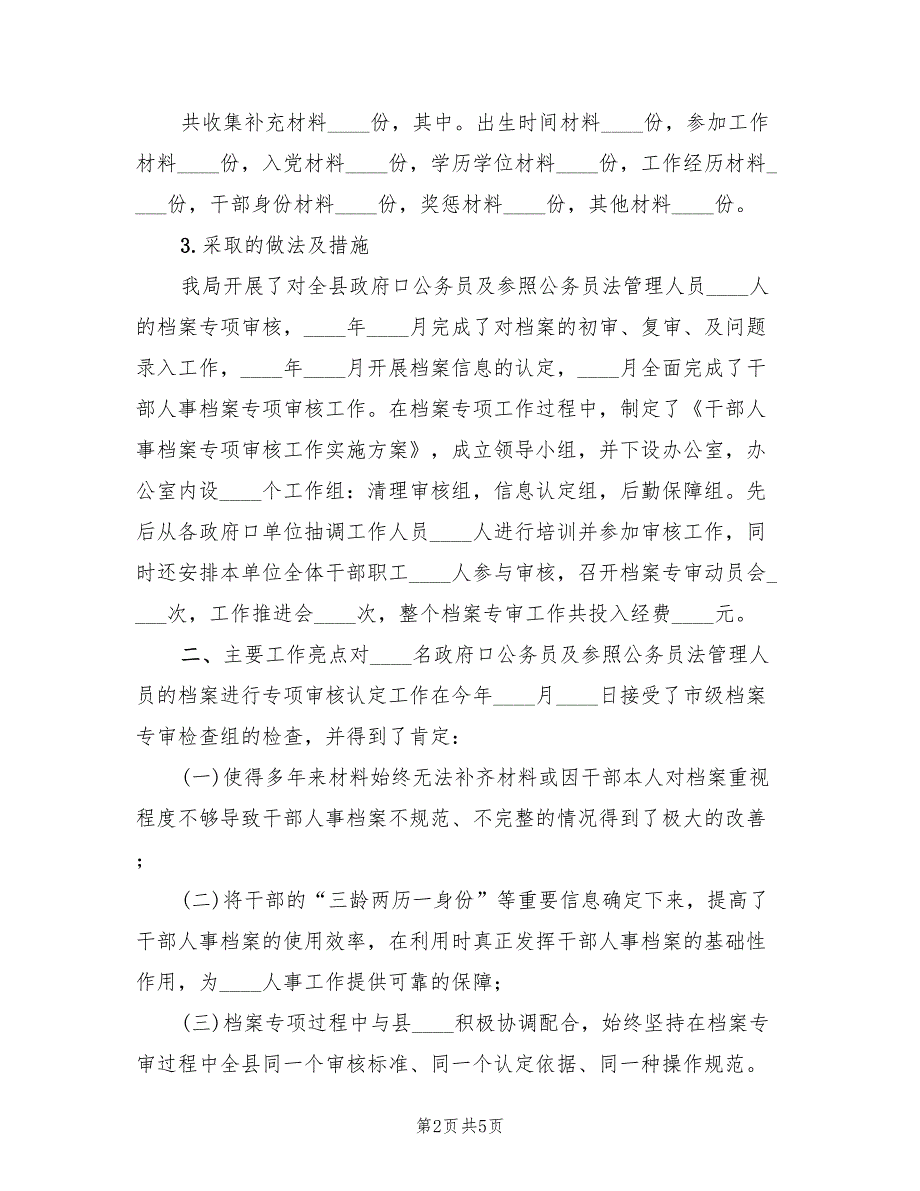 共收集补充材料____份，其中。出生时间材料____份，参加工作
材料____份，入党材料____份，学历学位材料____份，工作经历材料_
___份，干部身份材料____份，奖惩材料____份，其他材料____份。
3.采取的做法及措施
我局开展了对全县政府口公务员及参照公务员法管理人员____人
的档案专项审核，____年____月完成了对档案的初审、复审、及问题
录入工作，____年____月开展档案信息的认定，____月全面完成了干
部人事档案专项审核工作。在档案专项工作过程中，制定了《干部人
事档案专项审核工作实施方案》，成立领导小组，并下设办公室，办
公室内设____个工作组：清理审核组，信息认定组，后勤保障组。先
后从各政府口单位抽调工作人员____人进行培训并参加审核工作，同
时还安排本单位全体干部职工____人参与审核，召开档案专审动员会_
___次，工作推进会____次，整个档案专审工作共投入经费____元。
二、主要工作亮点对____名政府口公务员及参照公务员法管理人
员的档案进行专项审核认定工作在今年____月____日接受了市级档案
专审检查组的检查，并得到了肯定：
(一)使得多年来材料始终无法补齐材料或因干部本人对档案重视
程度不够导致干部人事档案不规范、不完整的情况得到了极大的改善
；
(二)将干部的“三龄两历一身份”等重要信息确定下来，提高了
干部人事档案的使用效率，在利用时真正发挥干部人事档案的基础性
作用，为____人事工作提供可靠的保障；
(三)档案专项过程中与县____积极协调配合，始终坚持在档案专
审过程中全县同一个审核标准、同一个认定依据、同一种操作规范。
第2页共5页